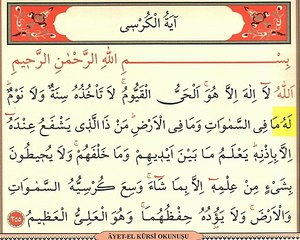 آيَةُ الْكُرْسِى
بِسْمِ اللّٰهِ الرَّحْمٰنِ الرَّحِيمِ
اَللّٰهُ لَٓا اِلٰهَ اِلَّا هُوَۚ اَلْحَىُّ الْقَيُّومُۚ لَا تَأْخُذُهُ سِنَةٌ وَلَا نَوْمٌۜ
لَهُ مَا فِى السَّمٰوَاتِ وَمَا فِى الْاَرْضِۜ مَنْ ذَا الَّذٖى يَشْفَعُ عِنْدَهُٓ
اِلَّا بِاِذْنِهٖۜ يَعْلَمُ مَا بَيْنَ اَيْدٖيهِمْ وَمَا خَلْفَهُمْۚ وَلَا يُحٖيطُونَ
بِشَىْءٍ مِنْ عِلْمِهٖٓ اِلَّا بِمَا شَٓاءَۚ وَسِعَ كُرْسِيُّهُ السَّمٰوَاتِ
وَالْاَرْضَۚ وَلَا يَؤُ۫دُهُ حِفْظُهُمَاۚ وَهُوَ الْعَلِىُّ الْعَظٖيمُ ﴿٢٥٥﴾
ÂYET-EL KÜRSÎ OKUNUŞU